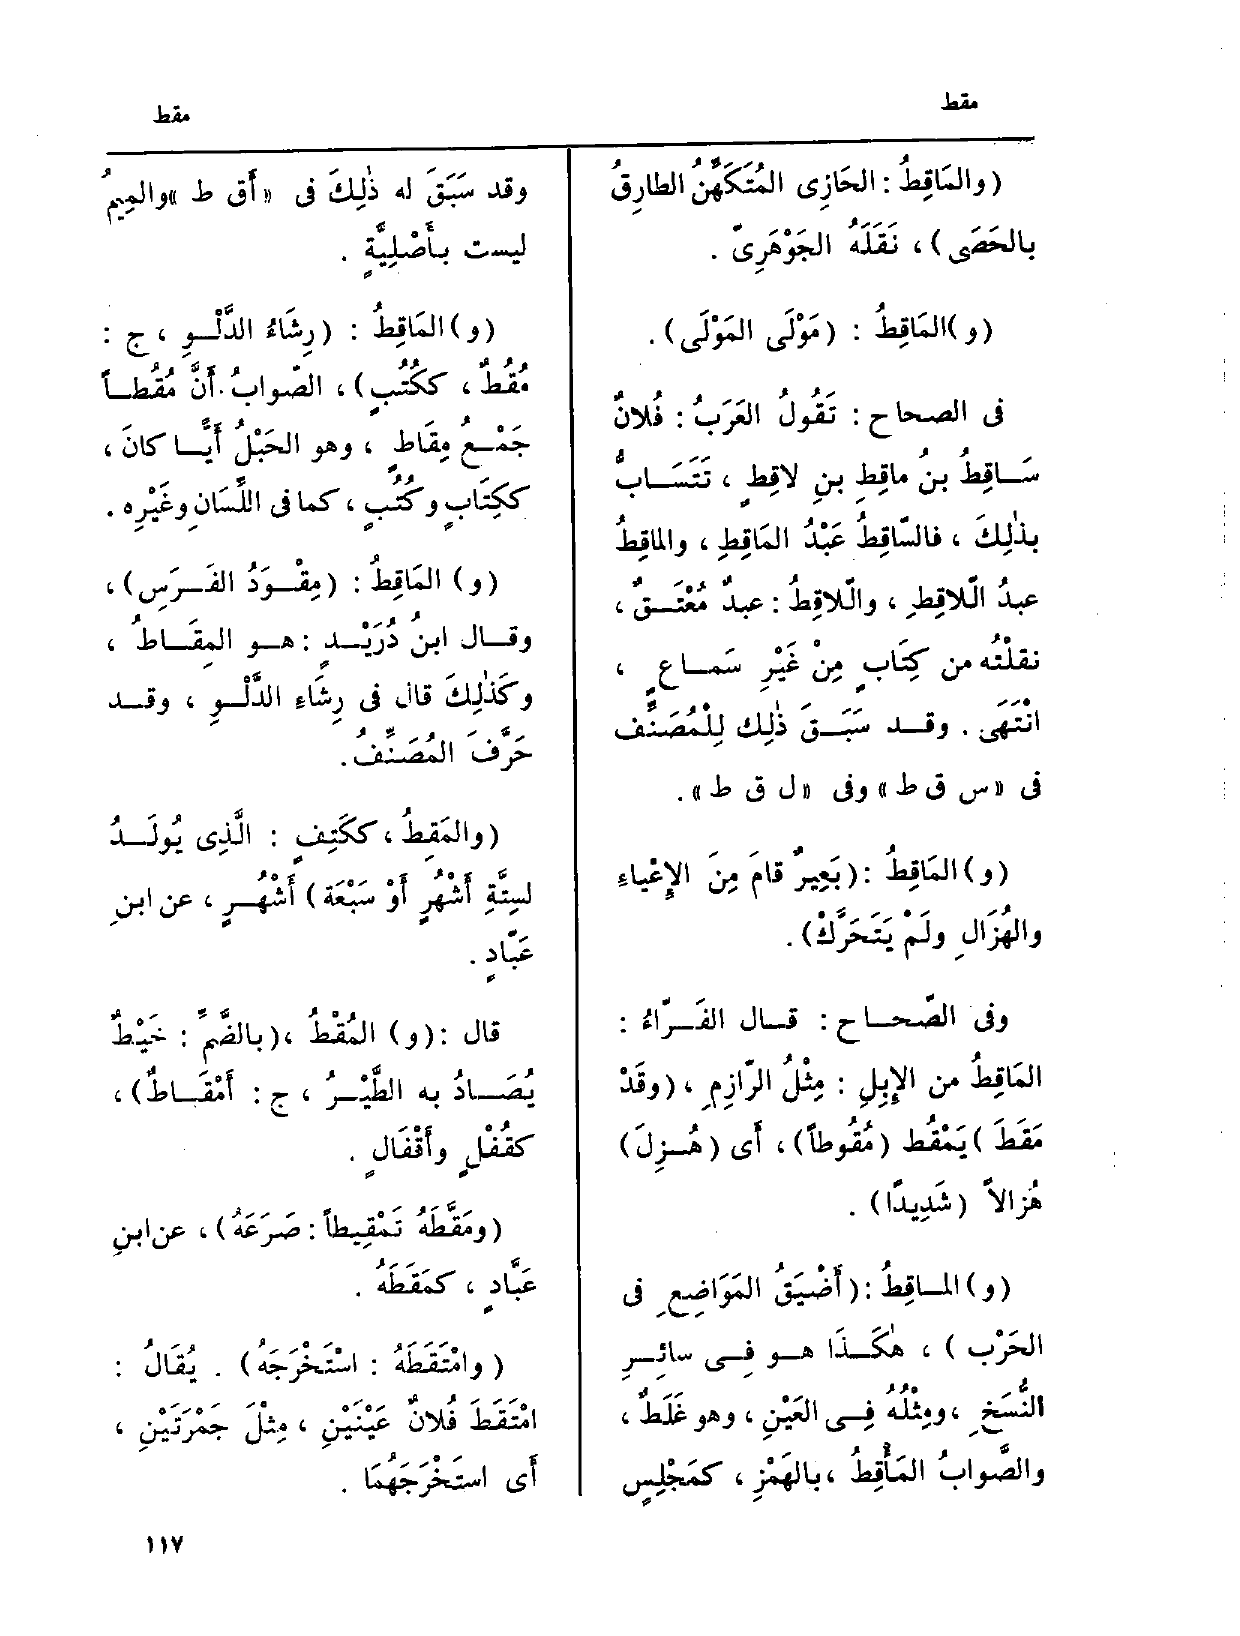 مقط
مقط
(والمَاقِطُ : الحَازِى المُتَكَهِّنُ الطارِقُ
بالحَصَى) ، نَقَلَهُ الجَوْهَرِىّ .
(و) المَاقِطُ : (مَوْلَى المَوْلَى) .
فى الصحاح : تَقُولُ العَرَبُ : فُلانٌ
سَاقِطُ بنُ ماقِطِ بنِ لاقِطٍ ، تَتَسَابُّ
بذٰلِكَ ، فالسّاقِطُ عَبْدُ المَاقِطِ ، والماقِطُ
عبدُ الّلاقِطِ ، والّلاقِطُ : عبدٌ مُعْتَقٌ ،
نقلْتُه من كِتَابٍ مِنْ غَيْرِ سَمَاعٍ ،
انْتَهَى . وقد سَبَقَ ذٰلِك لِلْمُصَنِّف
فى «س ق ط» وفى «ل ق ط» .
(و) المَاقِطُ : (بَعِيرٌ قامَ مِنَ الإِعْياءِ
والهُزَالِ ولَمْ يَتَحَرَّكْ) .
وفى الصّحاح : قال الفَرّاءُ :
المَاقِطُ من الإِبِلِ : مِثْلُ الرّازِمِ ، (وقَدْ
مَقَطَ) يَمْقُط (مُقُوطاً) ، أى (هُزِلَ)
هُزالاً (شَدِيدًا) .
(و) الماقِطُ : (أَضْيَقُ المَوَاضِعِ فى
الحَرْب) ، هٰكَذَا هو فِى سائِرِ
النُّسَخِ ، ومِثْلُهُ فِى العَيْنِ ، وهو غَلَطٌ ،
والصَّوابُ المَأْقِطُ ، بالهَمْزِ ، كمَجْلِسٍ
وقد سَبَقَ له ذٰلِكَ فى «أق ط» والمِيمُ
ليست بأَصْلِيَّةٍ .
(و) المَاقِطُ : (رِشَاءُ الدَّلْوِ ، ج :
مُقُطٌ ، ككُتُبٍ) ، الصّوابُ أَنَّ مُقُطاً
جَمْعُ مِقَاطٍ ، وهو الحَبْلُ أَيًّا كانَ ،
ككِتَابٍ وكُتُبٍ ، كما فى اللِّسَانِ وغَيْرِه .
(و) المَاقِطُ : (مِقْوَدُ الفَرَسِ) ،
وقال ابنُ دُرَيْدٍ : هو المِقَاطُ ،
وكَذٰلِكَ قال فى رِشَاءِ الدَّلْوِ ، وقد
حَرَّفَ المُصَنِّفُ .
(والمَقِطُ ، ككَتِفٍ : الَّذِى يُولَدُ
لسِتَّةِ أَشْهُرٍ أَوْ سَبْعَة) أَشْهُرٍ ، عن ابنِ
عَبّادٍ .
قال : (و) المُقْطُ ، (بالضَّمِّ : خَيْطٌ
يُصَادُ به الطَّيْرُ ، ج : أَمْقَاطٌ) ،
كقُفْلٍ وأَقْفَالٍ .
(ومَقَّطَهُ تَمْقِيطاً : صَرَعَهُ) ، عن ابنِ
عَبَّادٍ ، كمَقَطَهُ .
(وامْتَقَطَهُ : اسْتَخْرَجَهُ) . يُقَالُ :
امْتَقَطَ فُلانٌ عَيْنَيْنِ ، مِثْلَ جَمْرَتَيْنِ ،
أَى استَخْرَجَهُمَا .
١١٧